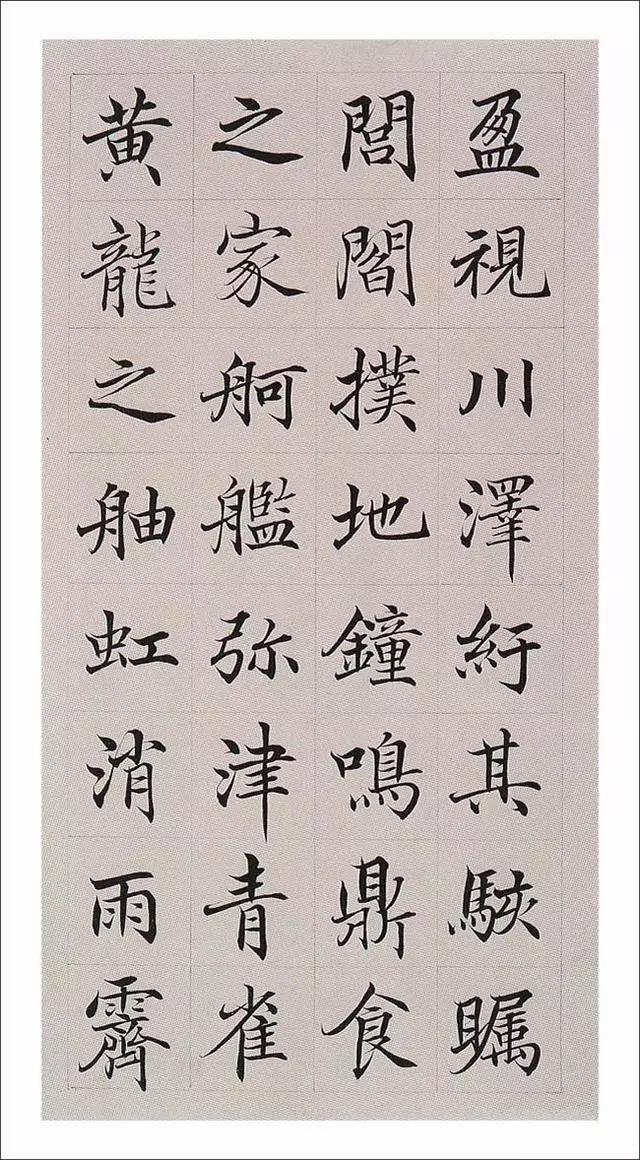 盈視川澤紆其駭矚
閭閻撲地鐘鳴鼎食
之家舸艦弥津青雀
黃龍之舳虹消雨霽